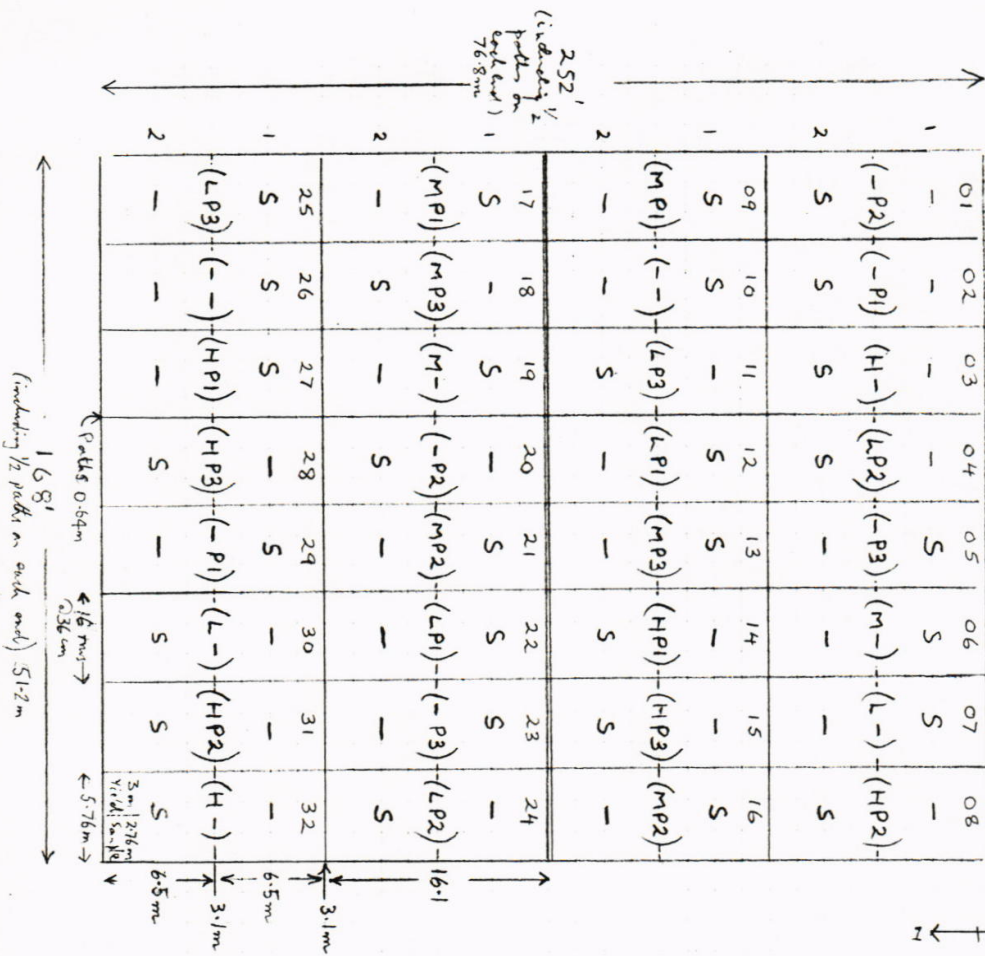 252'
(including 1/2
paths on
each end)
76.8m
1 2 1 2 1 2 1 2
01 02 03 04 05 06 07 08
– – – – S S S –
(-P2) (-P1) (H-) (LP2) (-P3) (M-) (L-) (HP2)
S S S S – – – S
09 10 11 12 13 14 15 16
S S – S S – – S
(MP1) (--) (LP3) (LP1) (MP3) (HP1) (HP3) (MP2)
– – S – – S S –
17 18 19 20 21 22 23 24
S – S – S S S –
(MP1) (MP3) (M-) (-P2) (MP2) (LP1) (-P3) (LP2)
– S – S – – – S
25 26 27 28 29 30 31 32
S S S – S – – –
(LP3) (--) (HP1) (HP3) (-P1) (L-) (HP2) (H-)
– – – S – S S S
3m 2.76m
Yield sample
Paths 0.64m
16 rows
@36cm
5.76m
168'
(including 1/2 paths on each end) 51.2m
16.1
3.1m
6.5m
3.1m
6.5m